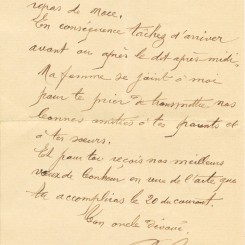 repas de noce.
En conséquence tachez d'arriver
avant ou après le dit après midi
Ma femme se joint à moi
pour te prier de transmettre nos
bonnes amitiés à tes parents et
à tes sœurs.
Et pour toi reçois nos meilleurs
vœux de bonheur en vue de l'acte que
tu accompliras le 20 du courant.
Ton oncle dévoué.